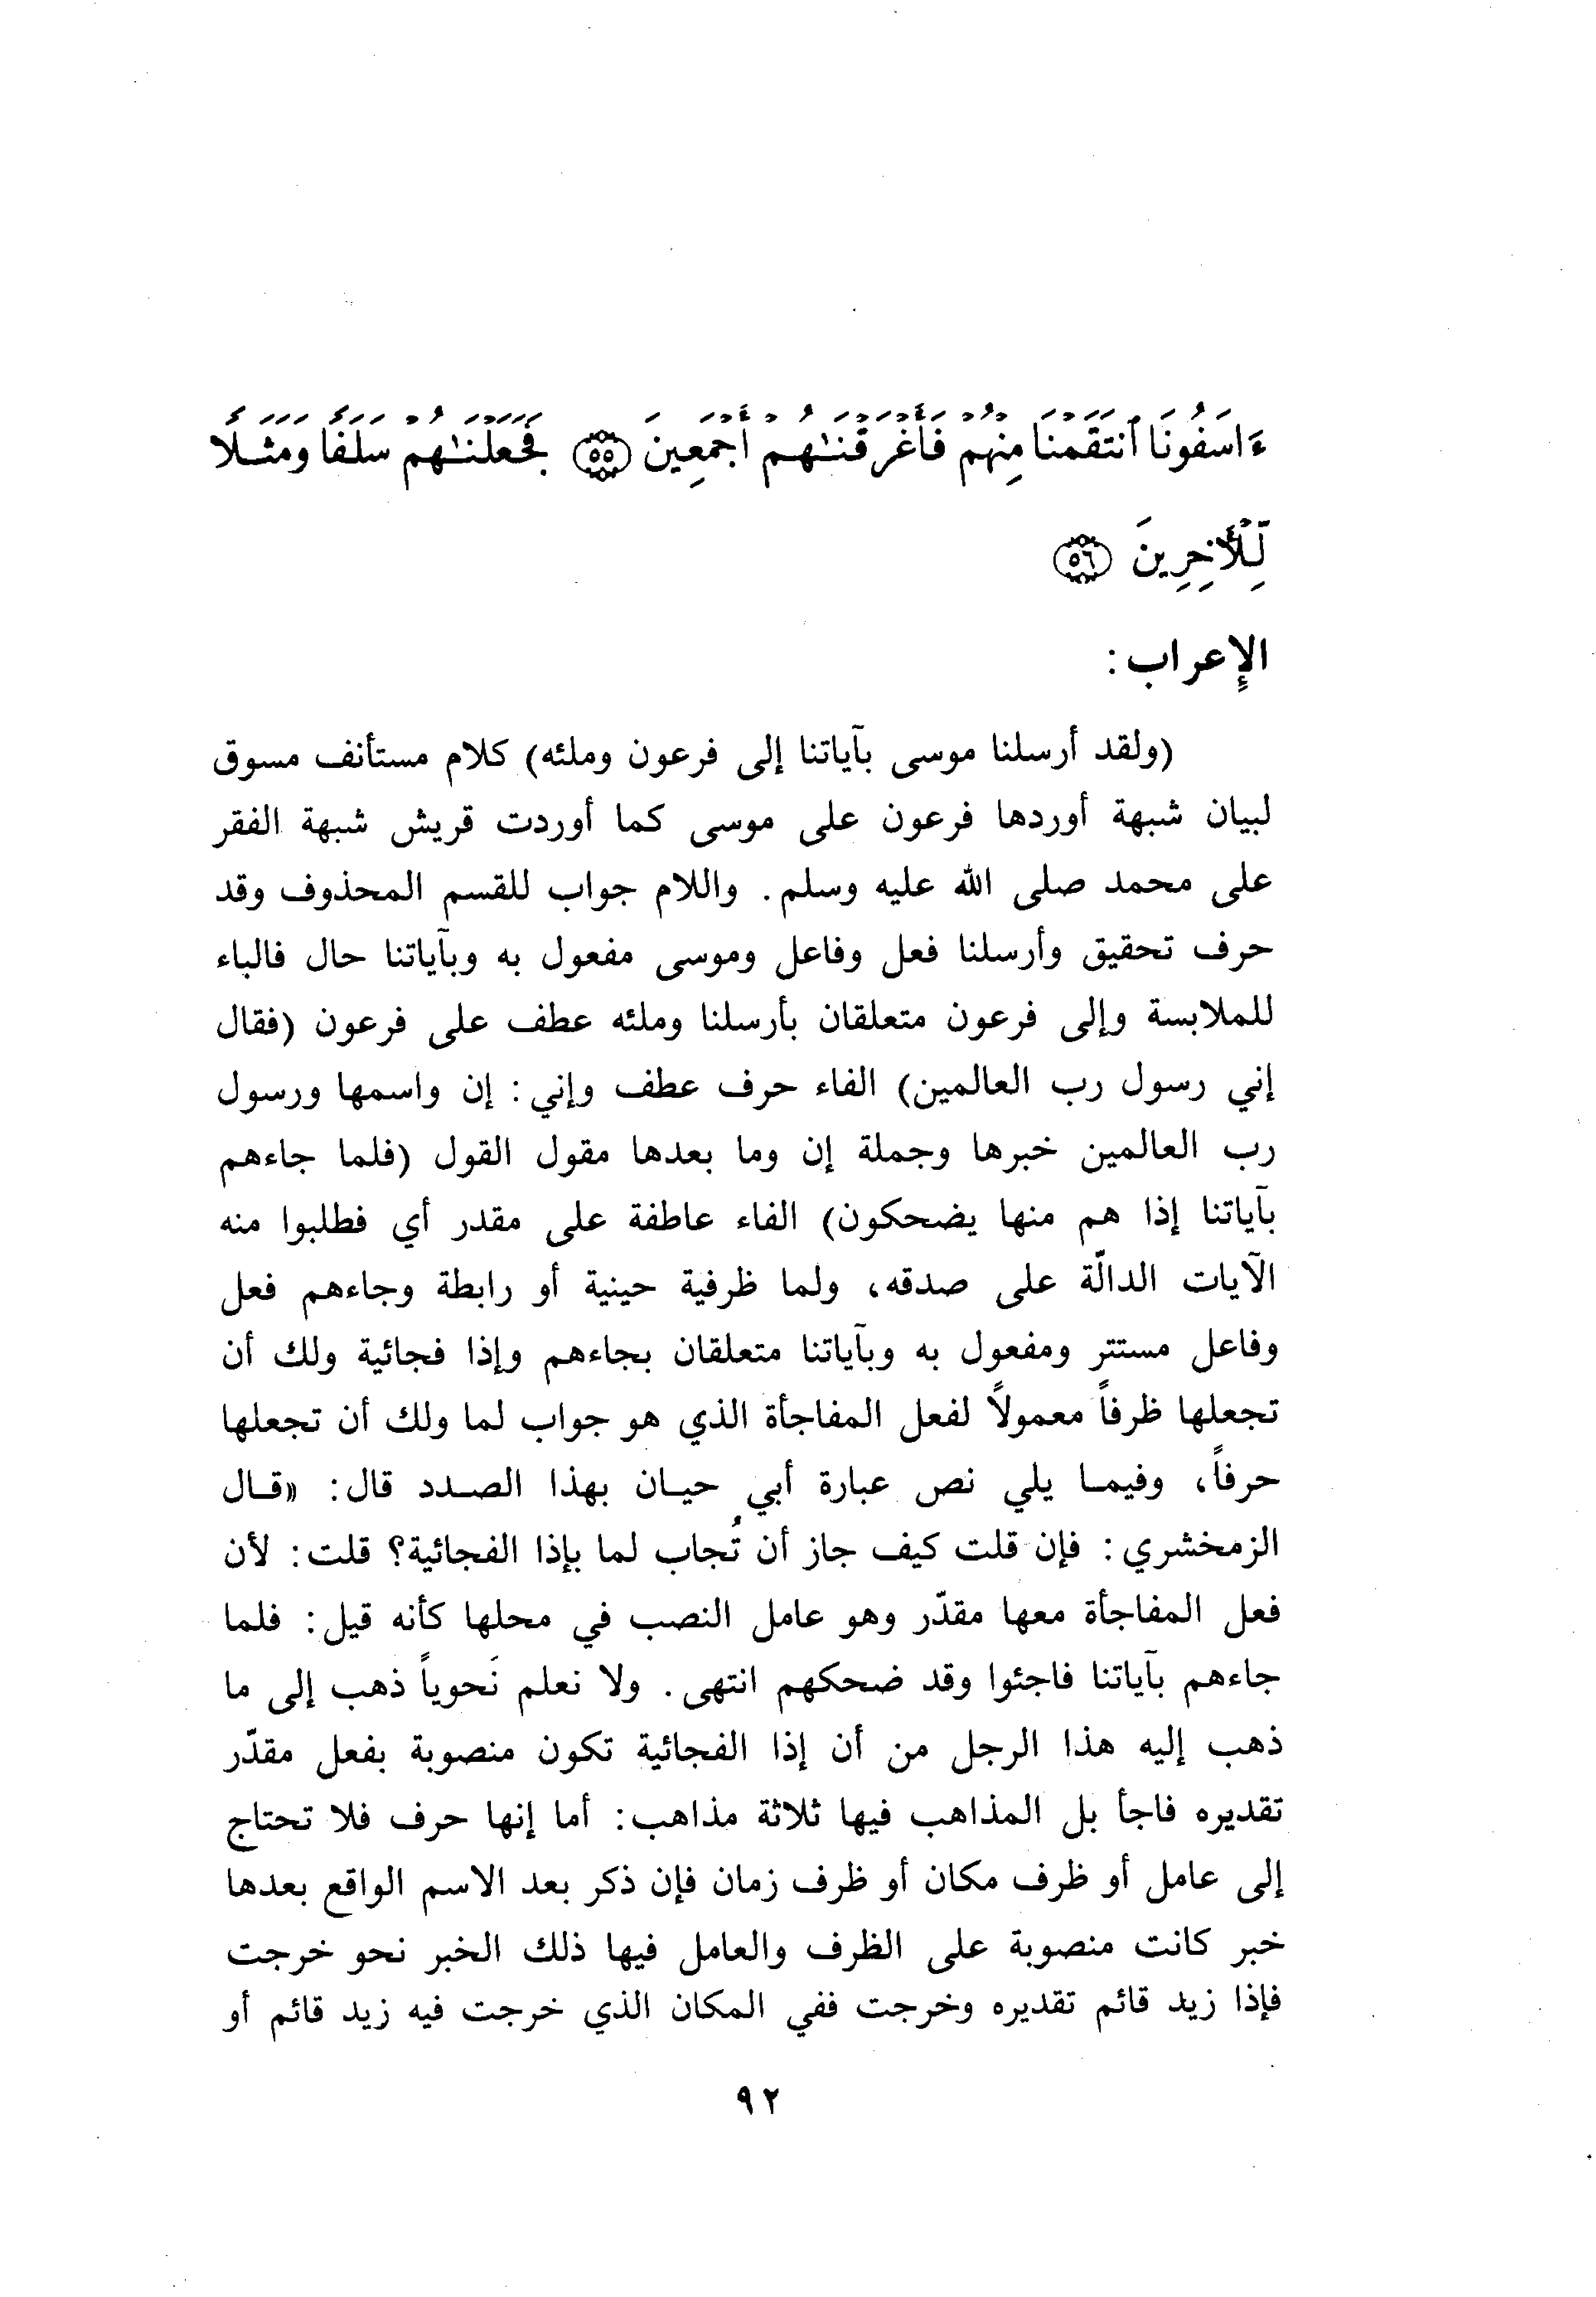 ءَاسَفُونَا ٱنتَقَمْنَا مِنْهُمْ فَأَغْرَقْنَـٰهُمْ أَجْمَعِينَ ٥٥ فَجَعَلْنَـٰهُمْ سَلَفًا وَمَثَلًا
لِّلْـَٔاخِرِينَ ٥٦
الإِعراب :
(ولقد أرسلنا موسى بآياتنا إلى فرعون وملئه) كلام مستأنف مسوق
لبيان شبهة أوردها فرعون على موسى كما أوردت قريش شبهة الفقر
على محمد صلى الله عليه وسلم. واللام جواب للقسم المحذوف وقد
حرف تحقيق وأرسلنا فعل وفاعل وموسى مفعول به وبآياتنا حال فالباء
للملابسة وإلى فرعون متعلقان بأرسلنا وملئه عطف على فرعون (فقال
إني رسول رب العالمين) الفاء حرف عطف وإني: إن واسمها ورسول
رب العالمين خبرها وجملة إن وما بعدها مقول القول (فلما جاءهم
بآياتنا إذا هم منها يضحكون) الفاء عاطفة على مقدر أي فطلبوا منه
الآيات الدالّة على صدقه، ولما ظرفية حينية أو رابطة وجاءهم فعل
وفاعل مستتر ومفعول به وبآياتنا متعلقان بجاءهم وإذا فجائية ولك أن
تجعلها ظرفاً معمولاً لفعل المفاجأة الذي هو جواب لما ولك أن تجعلها
حرفاً، وفيما يلي نص عبارة أبي حيان بهذا الصدد قال: «قال
الزمخشري: فإن قلت كيف جاز أن تُجاب لما بإذا الفجائية؟ قلت: لأن
فعل المفاجأة معها مقدّر وهو عامل النصب في محلها كأنه قيل: فلما
جاءهم بآياتنا فاجئوا وقد ضحكهم انتهى. ولا نعلم نَحوياً ذهب إلى ما
ذهب إليه هذا الرجل من أن إذا الفجائية تكون منصوبة بفعل مقدّر
تقديره فاجأ بل المذاهب فيها ثلاثة مذاهب: أما إنها حرف فلا تحتاج
إلى عامل أو ظرف مكان أو ظرف زمان فإن ذكر بعد الاسم الواقع بعدها
خبر كانت منصوبة على الظرف والعامل فيها ذلك الخبر نحو خرجت
فإذا زيد قائم تقديره وخرجت ففي المكان الذي خرجت فيه زيد قائم أو
٩٢